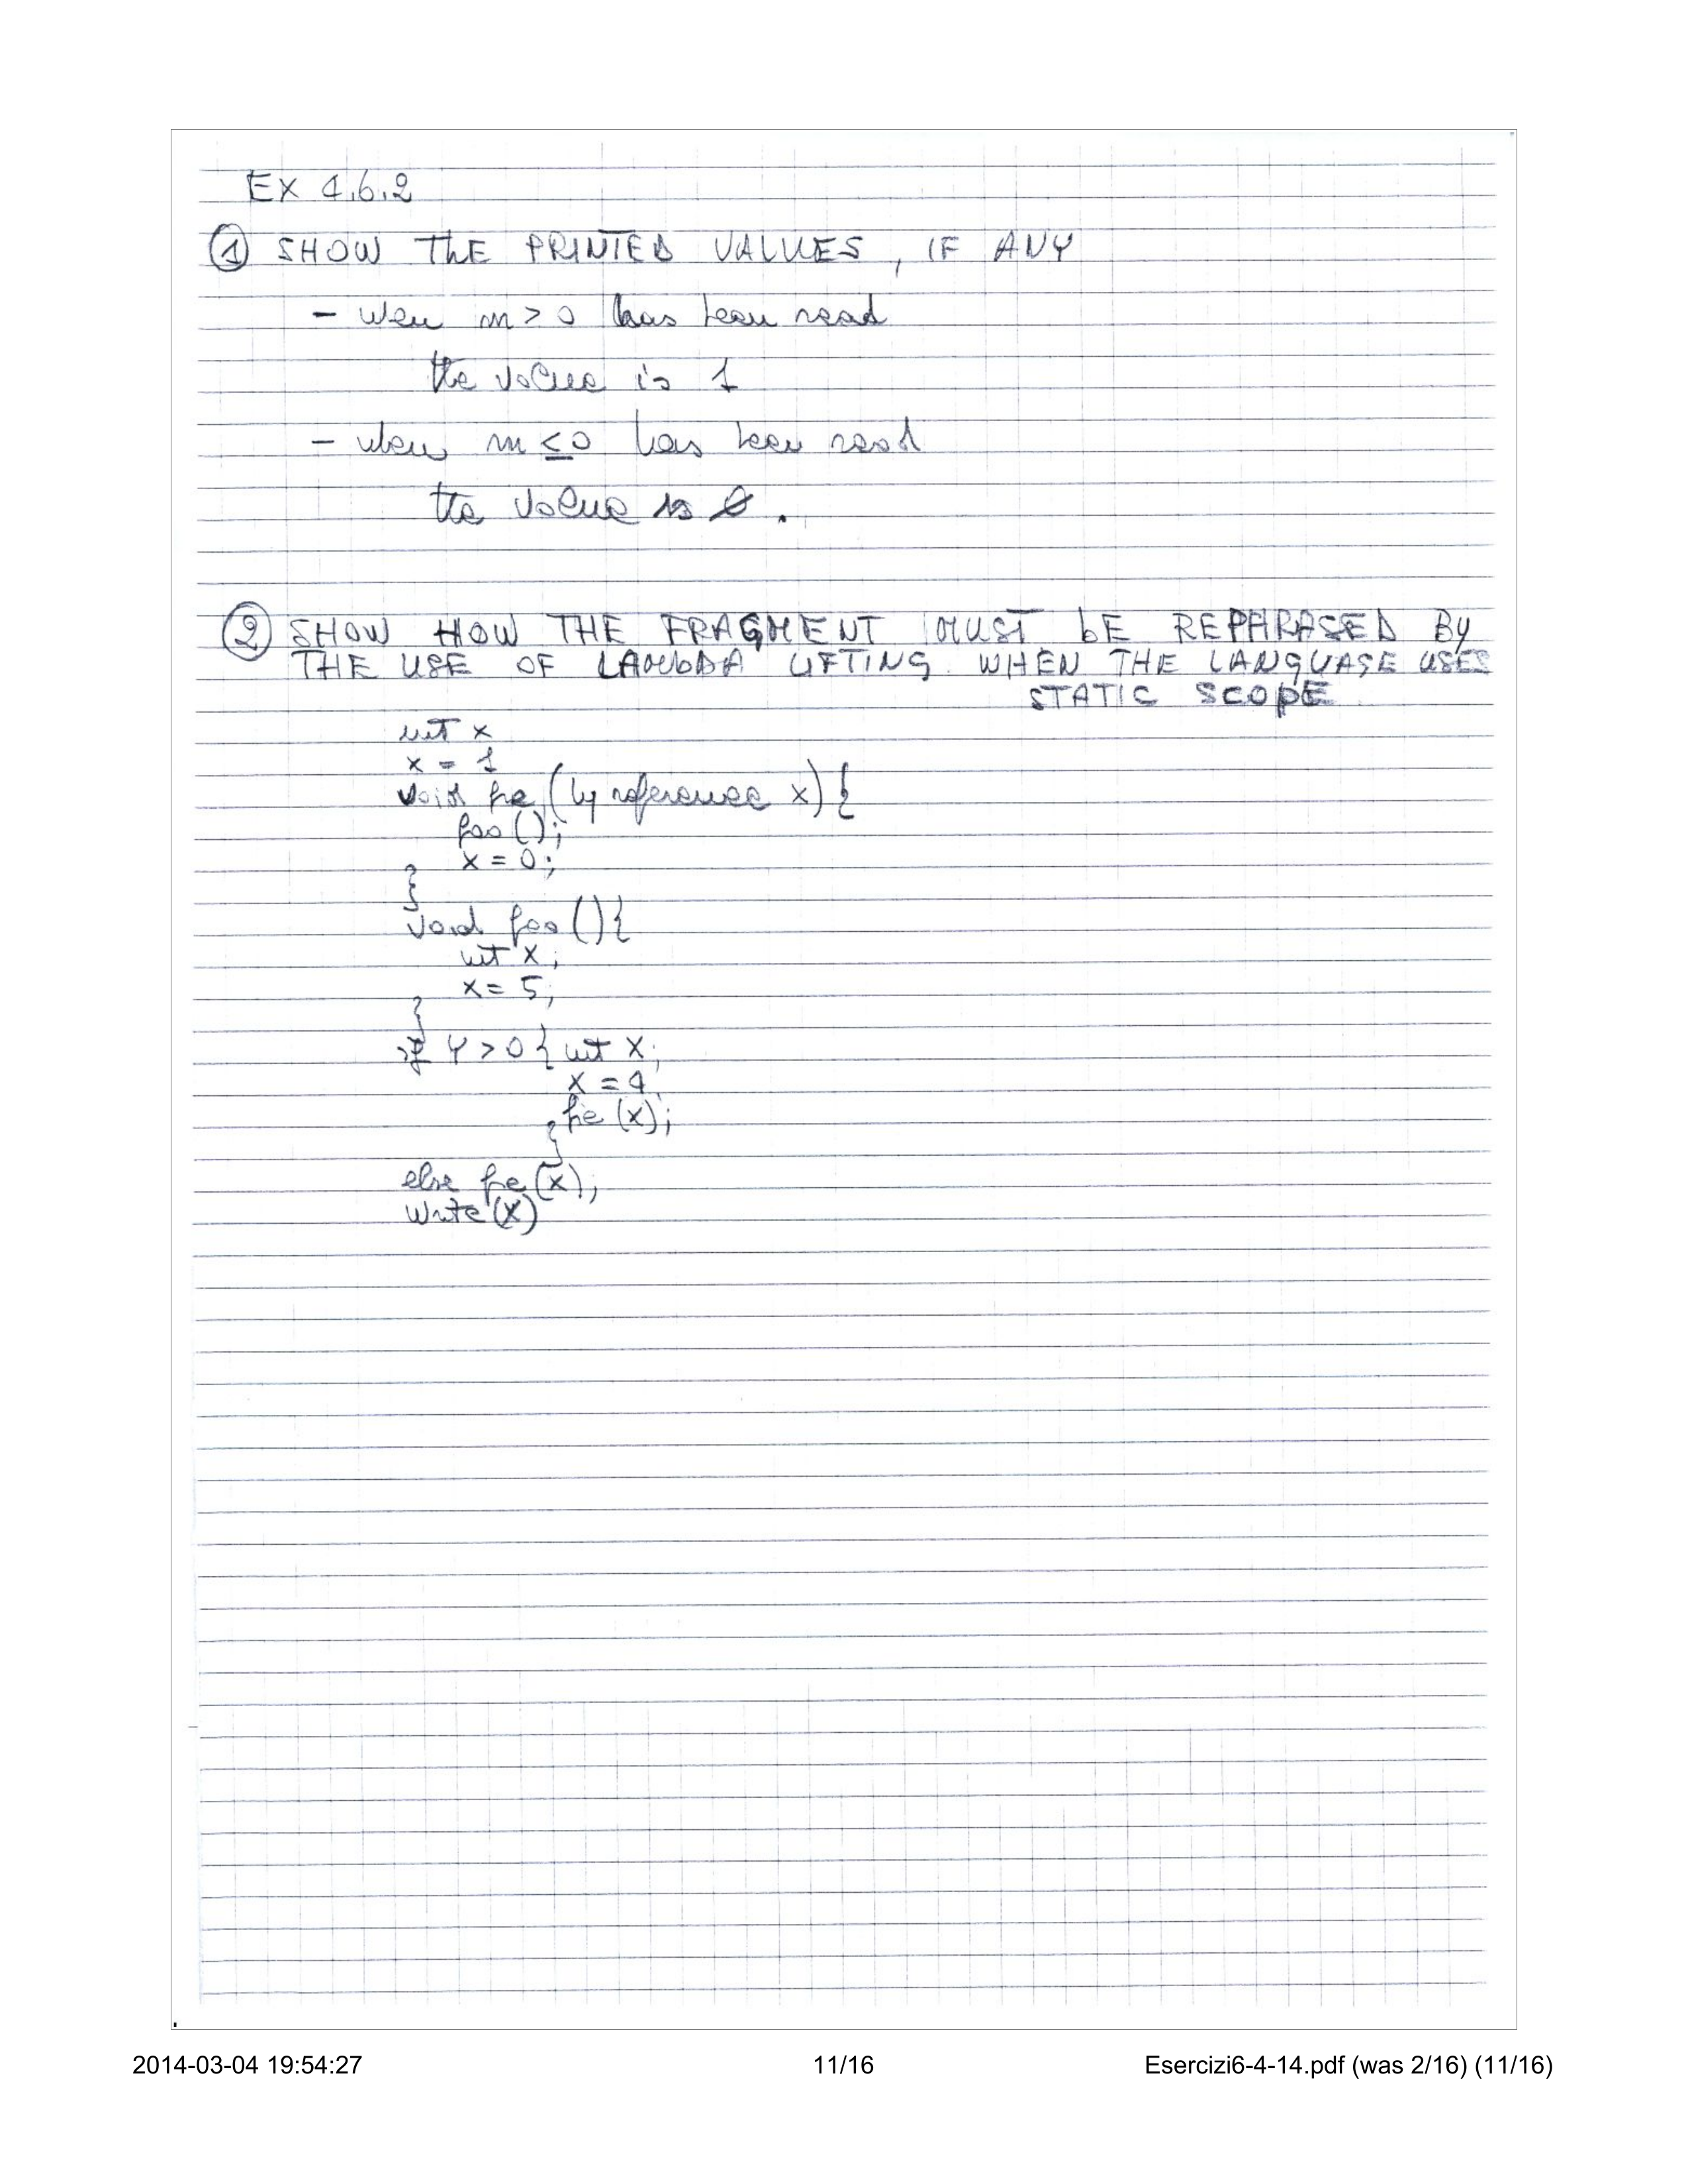 Ex 4.6.2
① SHOW THE PRINTED VALUES, IF ANY
- wen m > 0 has been read
the value is 1
- when m ≤ 0 has been read
the value is 0.
② SHOW HOW THE FRAGMENT MUST bE REPHRASED By
THE USE OF LAMBDA LIFTING WHEN THE LANGUAGE USES
STATIC SCOPE
int x
x = 1
void fie (by reference x) {
foo ();
x = 0;
}
void foo () {
int x;
x = 5;
}
if Y > 0 { int x;
x = 4
fie (x);
}
else fie (x);
Write (x)
2014-03-04 19:54:27 11/16 Esercizi6-4-14.pdf (was 2/16) (11/16)